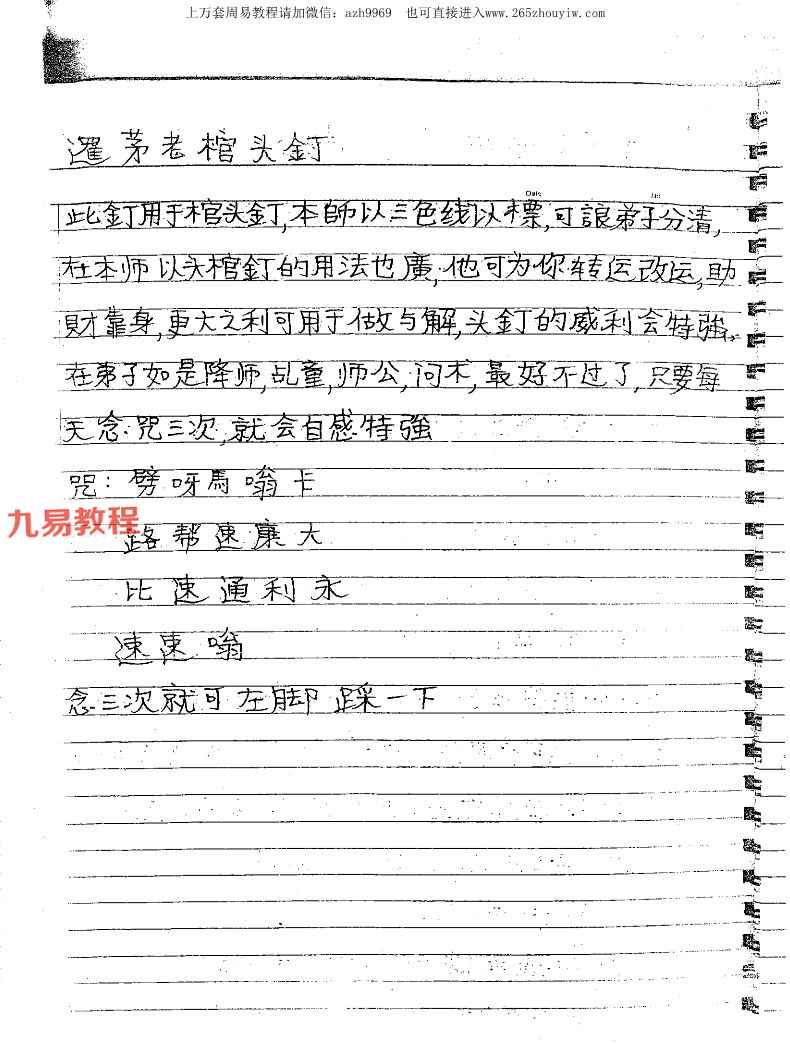 上万套周易教程请加微信：azh9969 也可直接进入www.265zhouyiw.com
暹茅老棺头釘
Date
No
此釘用于棺头釘,本師以三色线以標,可誏弟子分清,
在本师以头棺釘的用法也廣,他可为你转运改运,助
財靠身,更大之利可用于做与解,头釘的威利会特強,
在弟子如是降师,乩童,师公,问术,最好不过了,只要每
天念咒三次,就会自感特強
咒：劈呀馬嗡卡
九易教程
路帮速廉大
比速通利永
速速嗡
念三次就可左脚踩一下